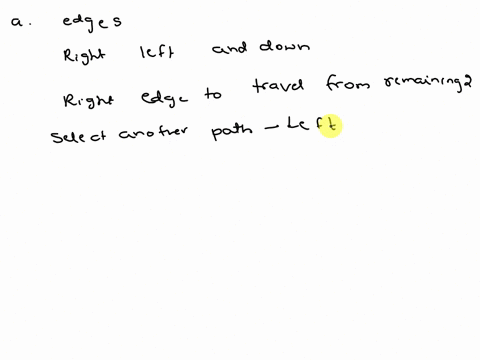 a. edges
Right left and down
Right edge to travel from remaining 2
Select another path - Left